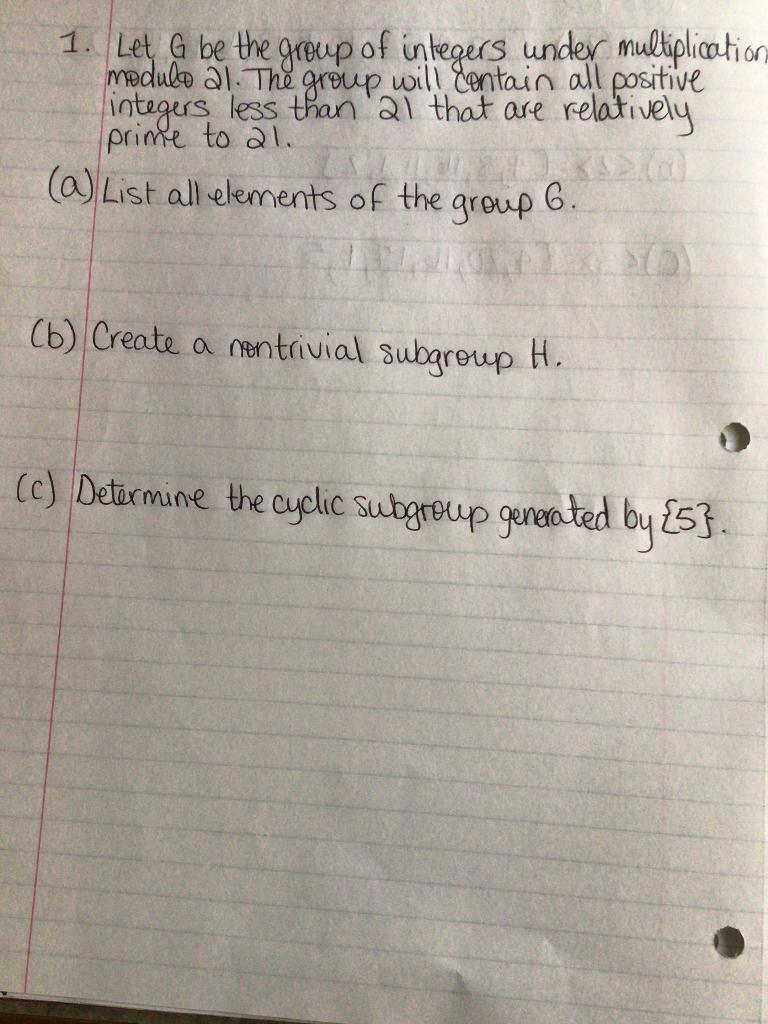 1. Let G be the group of integers under multiplication
modulo 21. The group will contain all positive
integers less than 21 that are relatively
prime to 21.
(a) List all elements of the group G.
(b) Create a nontrivial subgroup H.
(c) Determine the cyclic subgroup generated by {5}.